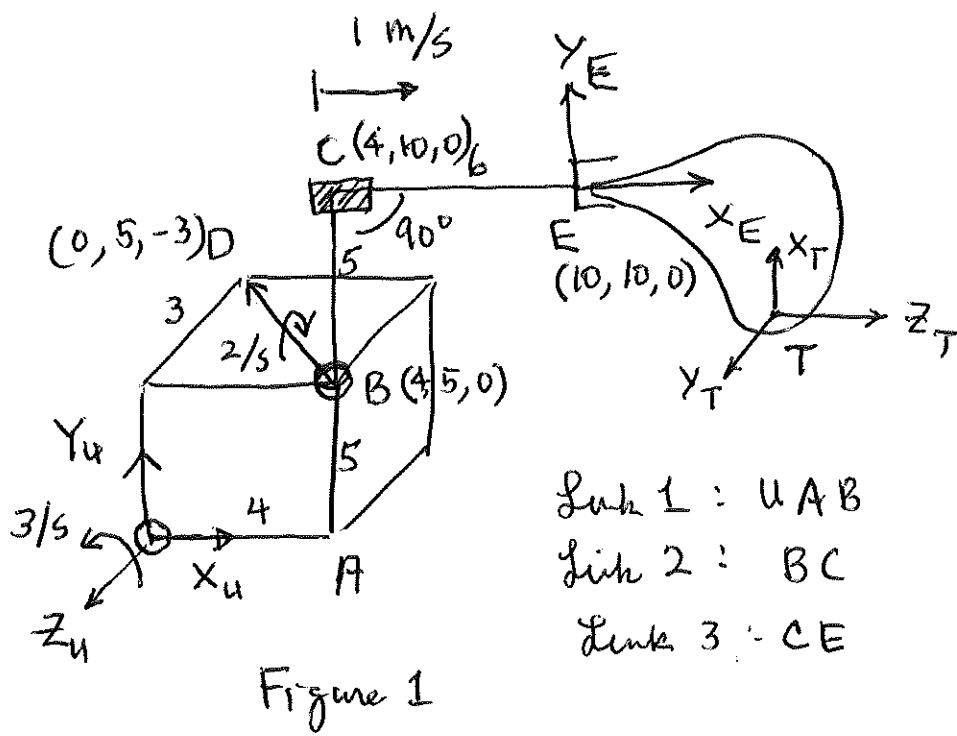 1 m/s
Y_E
C (4,10,0)
6
90°
X_E
E
(10, 10, 0)
X_T
Z_T
Y_T
T
(0, 5, -3) D
5
3
2/s
B (4,5,0)
Y_u
5
3/s
4
X_u
A
Z_u
Link 1 : U A B
Link 2 : B C
Link 3 :- C E
Figure 1